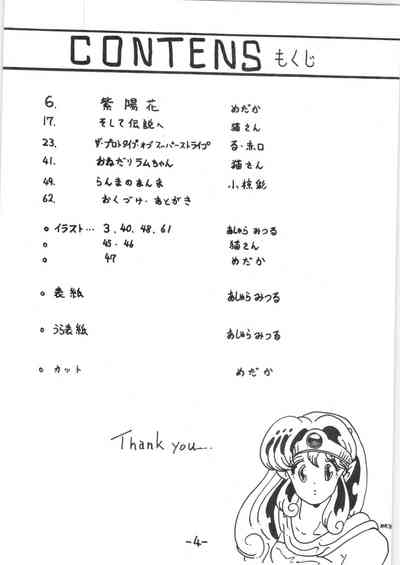 CONTENS もくじ
6. 紫陽花 めだか
17. そして伝説へ 猫さん
23. ザ・プロトタイプ・オブ・スーパーストライプ る・ホロ
41. おねだりラムちゃん 猫さん
49. らんまのまんま 小椋彩
62. おくづけ・あとがき
o イラスト… 3.40.48.61 あしゅら みつる
o 45.46 猫さん
o 47 めだか
o 表紙 あしゅら みつる
o うら表紙 あしゅら みつる
o カット めだか
Thank you...
-4-